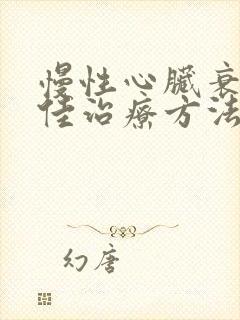 慢性心臟衰
佳治療方法
幻唐